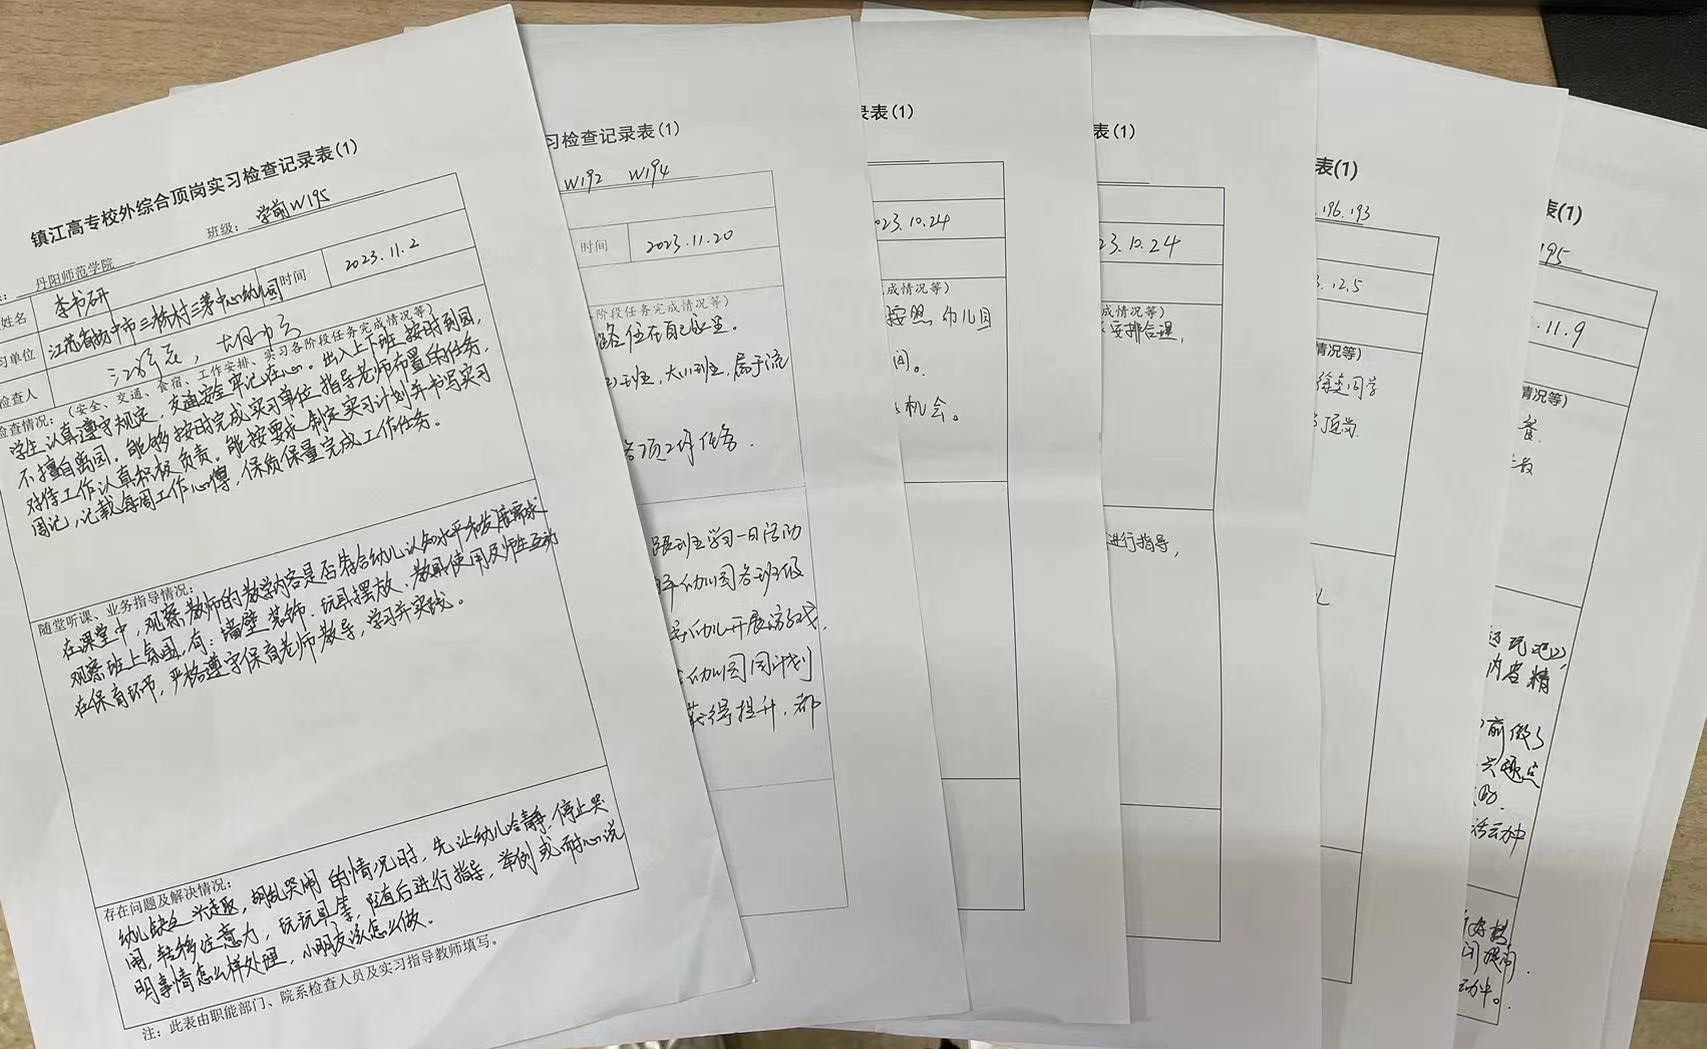 镇江高专校外综合顶岗实习检查记录表(1)
丹阳师范学院
班级： 学前W195
姓名 李书研 时间 2023.11.2
习单位 江苏省扬中市三桥村三茅中心幼儿园
检查人
检查情况：（安全、交通、食宿、工作安排、实习各阶段任务完成情况等）
学生认真遵守规定，交通安全牢记在心。出入上下班按时到园，
不擅自离园。能够按时完成实习单位指导老师布置的任务，
对待工作认真积极负责。能按要求制定实习计划并书写实习
周记，记载每周工作心得，保质保量完成工作任务。
随堂听课、业务指导情况：
在课堂中，观察教师的教学内容是否符合幼儿认知水平和发展需求
观察班上氛围，有：墙壁装饰、玩具摆放、教具使用及师生互动
在保育环节，严格遵守保育老师教导，学习并实践。
存在问题及解决情况：
幼儿缺乏兴趣，胡乱哭闹的情况时，先让幼儿冷静，停止哭
闹，转移注意力，玩玩具等，随后进行指导，举例或耐心说
明事情怎么样处理，小朋友该怎么做。
注：此表由职能部门、院系检查人员及实习指导教师填写。
习检查记录表(1)
W192 W194
时间 2023.11.20
阶段任务完成情况等）
住在自己家里。
班，大小班，属于流
各项工作任务．
跟班学习一日活动
幼儿园各班级
幼儿开展游戏，
幼儿园周计划
获得提升，都
录表(1)
023.10.24
成情况等）
按照幼儿园
间。
机会。
表(1)
23.10.24
成情况等）
安排合理，
进行指导，
表(1)
196.193
.12.5
情况等）
徐奕同学
顶岗
表(1)
195
.11.9
情况等）
餐
还玩泥巴，
内容精
前做了
兴趣点
活动中
提问．
动中。